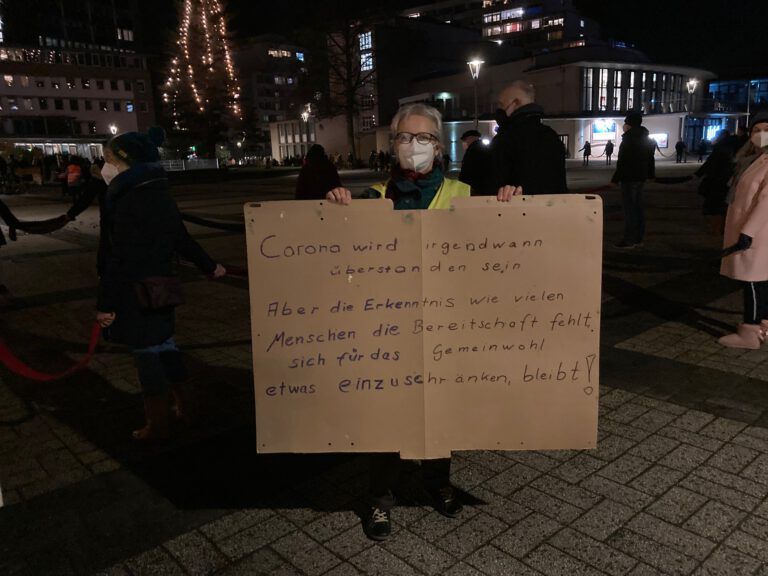 Corona wird irgendwann
überstanden sein
Aber die Erkenntnis wie vielen
Menschen die Bereitschaft fehlt,
sich für das Gemeinwohl
etwas einzuschränken, bleibt!